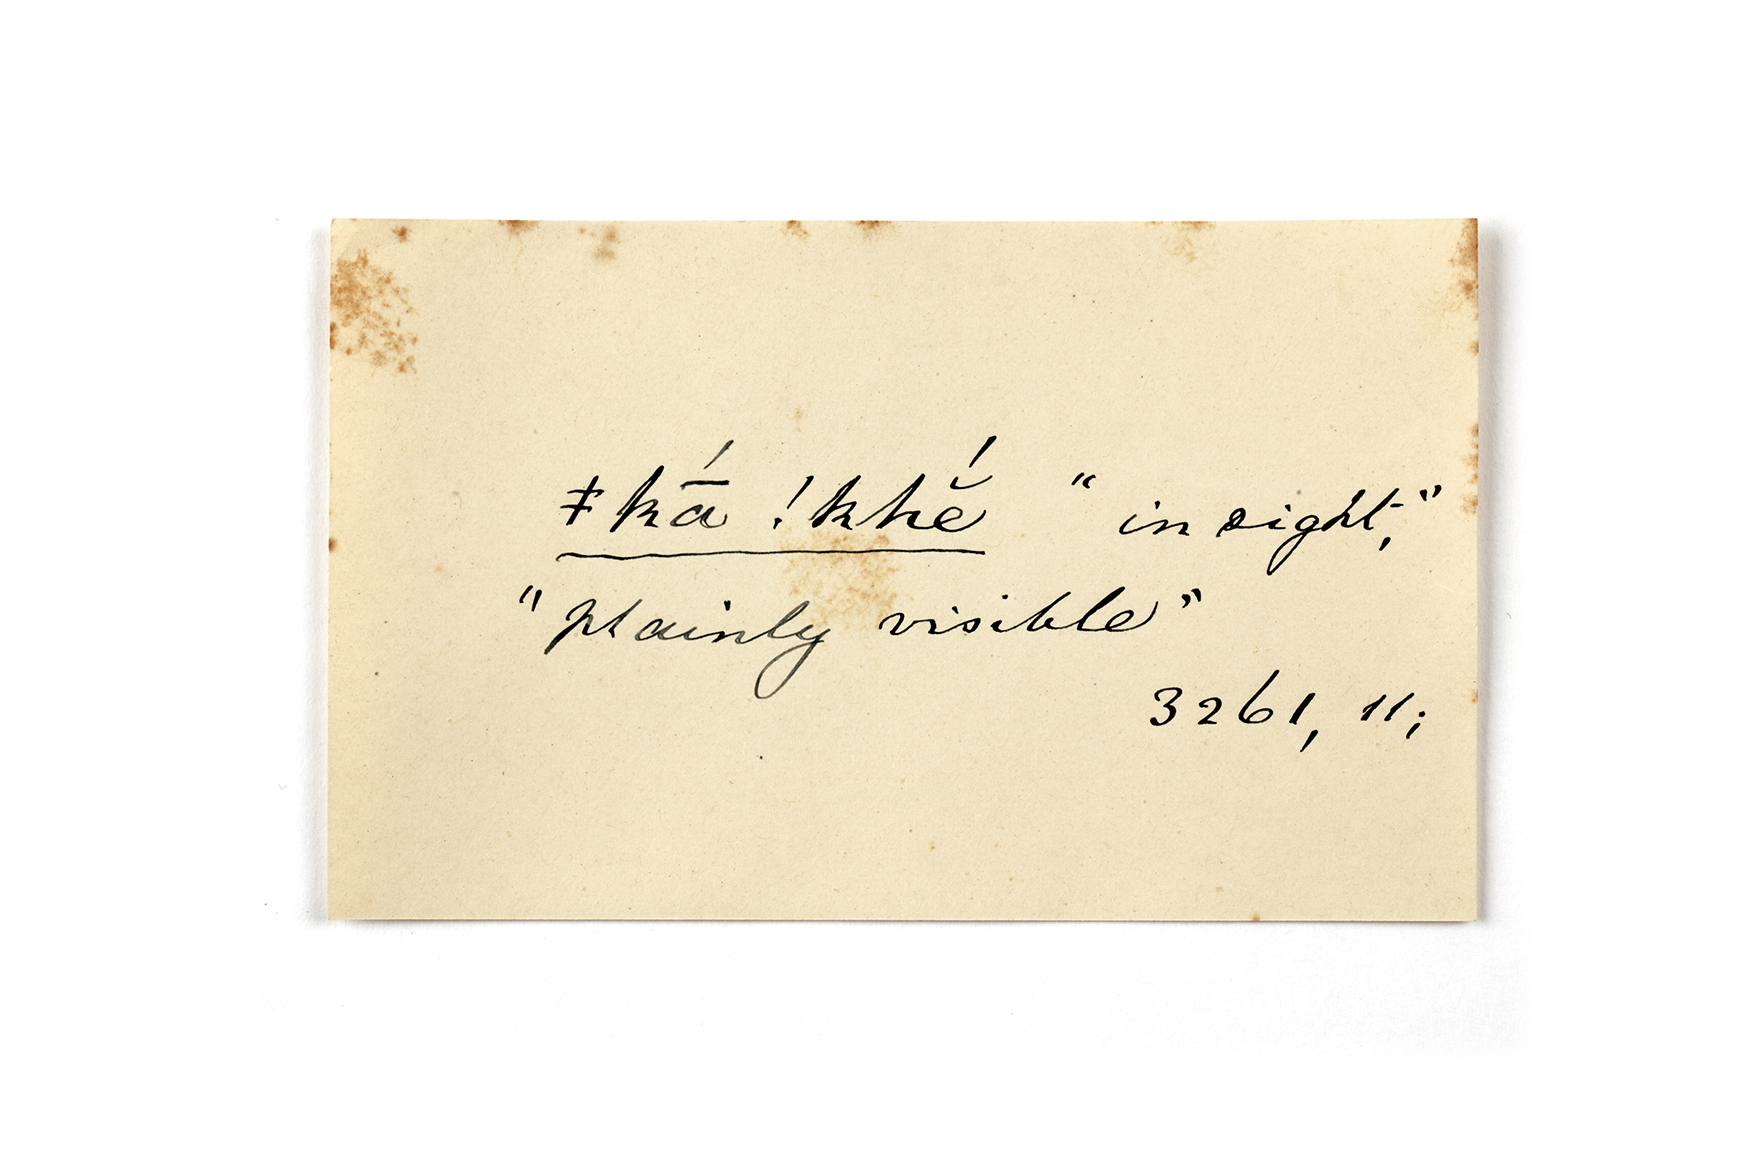 ǂkā́ !khĕ́ "in sight,"
"plainly visible"
3261, 11;